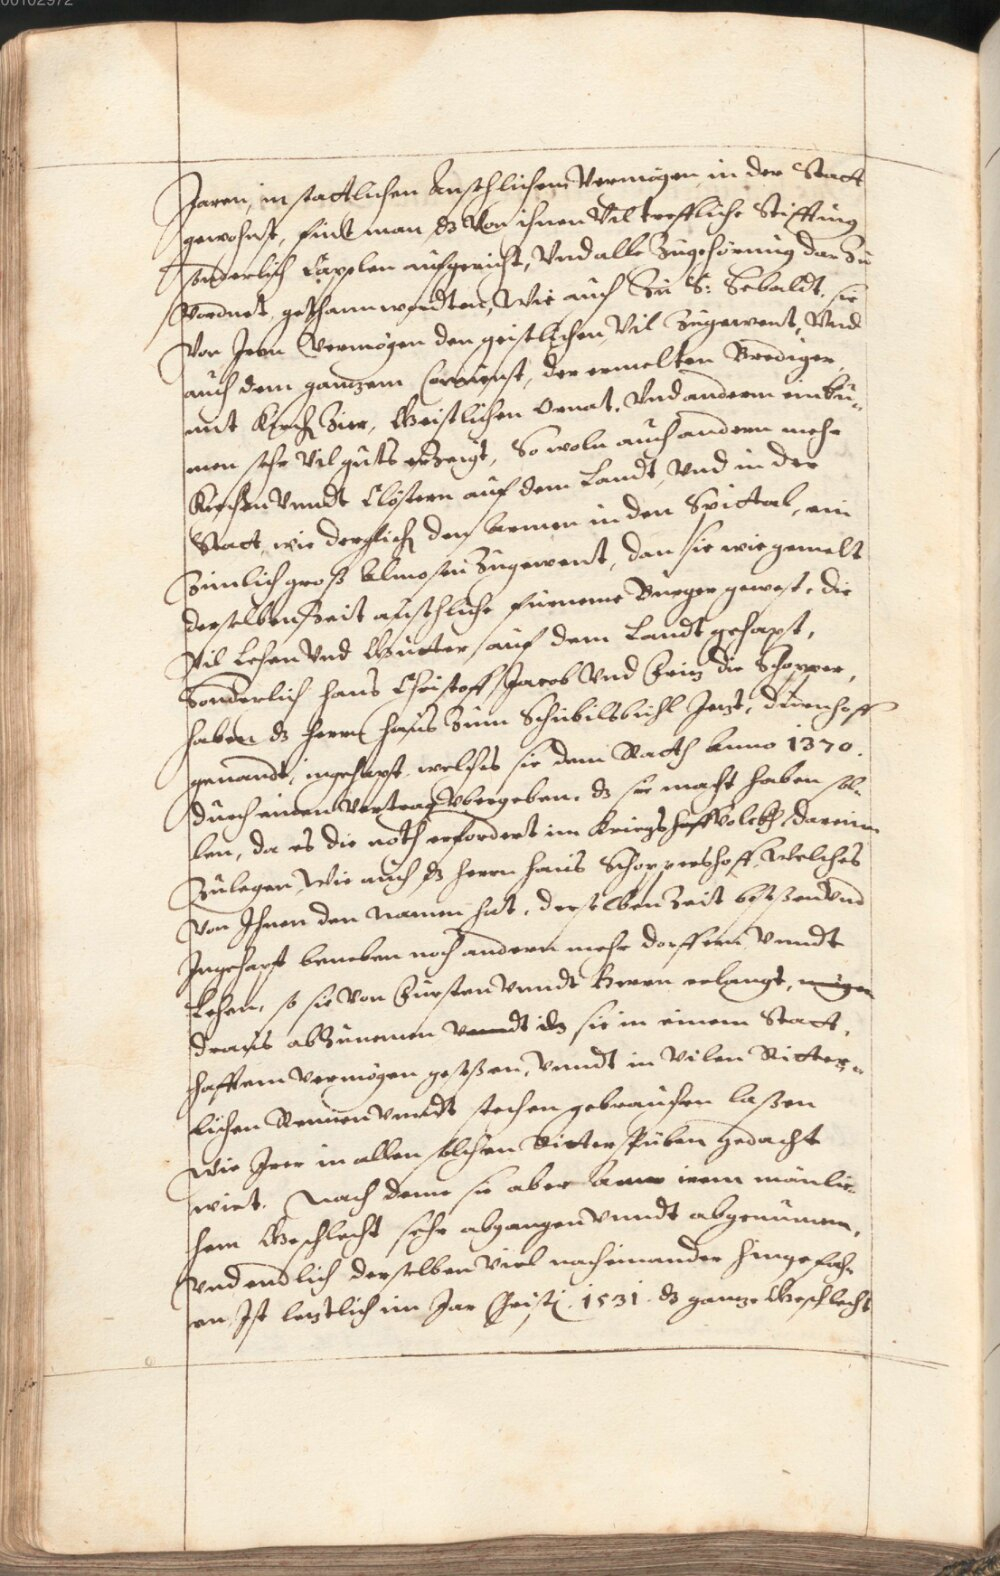 00102972
Jaren, in stattlichen Ansehlichem Vermögen in der Statt
gewohnt, findt man dz Von ihnen Vil treffliche Stifftung
sonderlich Cappelen aufgericht, Vnd alle Zugehörung dar Zu
Von Jrem Vermögen den geistlichen Vil Zugewent, Vnd
auch dem ganzem Conuent, der ermelten Prediger,
mit Kirch Zier, Geistlichen Ornat, Vnd anderm einku„
men sehr Vil guts erzeigt, So woln auch andern mehr
Kirchen Vnndt Clöstern auf dem Landt, Vnd in der
Statt, wie dergleich den Armen in den Spittal, ein
Zimlich groß Almosen Zugewent, dan sie wie gemelt
derselben Zeit ansehliche fürneme Burger gewest, die
Vil Lehen Vnd Gütter auf dem Landt gehapt,
Sonderlich Hans Christoff Jacob Vnd Fritz die Schopper,
haben dz Herrn Haus Zum Schübilsbühl Jetzt, dürrenhoff
genandt, ingehapt, welches sie dem Rath Anno 1370.
durch einen Vertrag Vbergeben, dz sie macht haben sol„
len, da es die noth erfordert im Kriegs Volckh darein
Zulegen, Wie auch dz Herrn Haus Schoppershoff, Welches
Von Jhnen den Namen hat, derselben Zeit besessen Vnd
Jngehapt beneben noch andern mehr dorffern Vnndt
Lehen, so sie Von Fürsten Vnndt Herrn erlangt,
draus abZunemen Vnndt dz sie in einem Statt„
hafftem Vermögen gesessen, Vnndt in Vilen Ritter„
lichen Rennen Vnndt stechen gebrauchen lassen
Wie Jrer in allen solchen Ritter gedacht
wirt. Nach deme sie aber irem mänlic„
hem Geschlecht sehr abgangen Vnndt abgenumen,
Vnd endlich derselben Viel nacheinander hingefahr
en Jst letztlich im Jar Christj. 1531. dz gantze Geschlecht